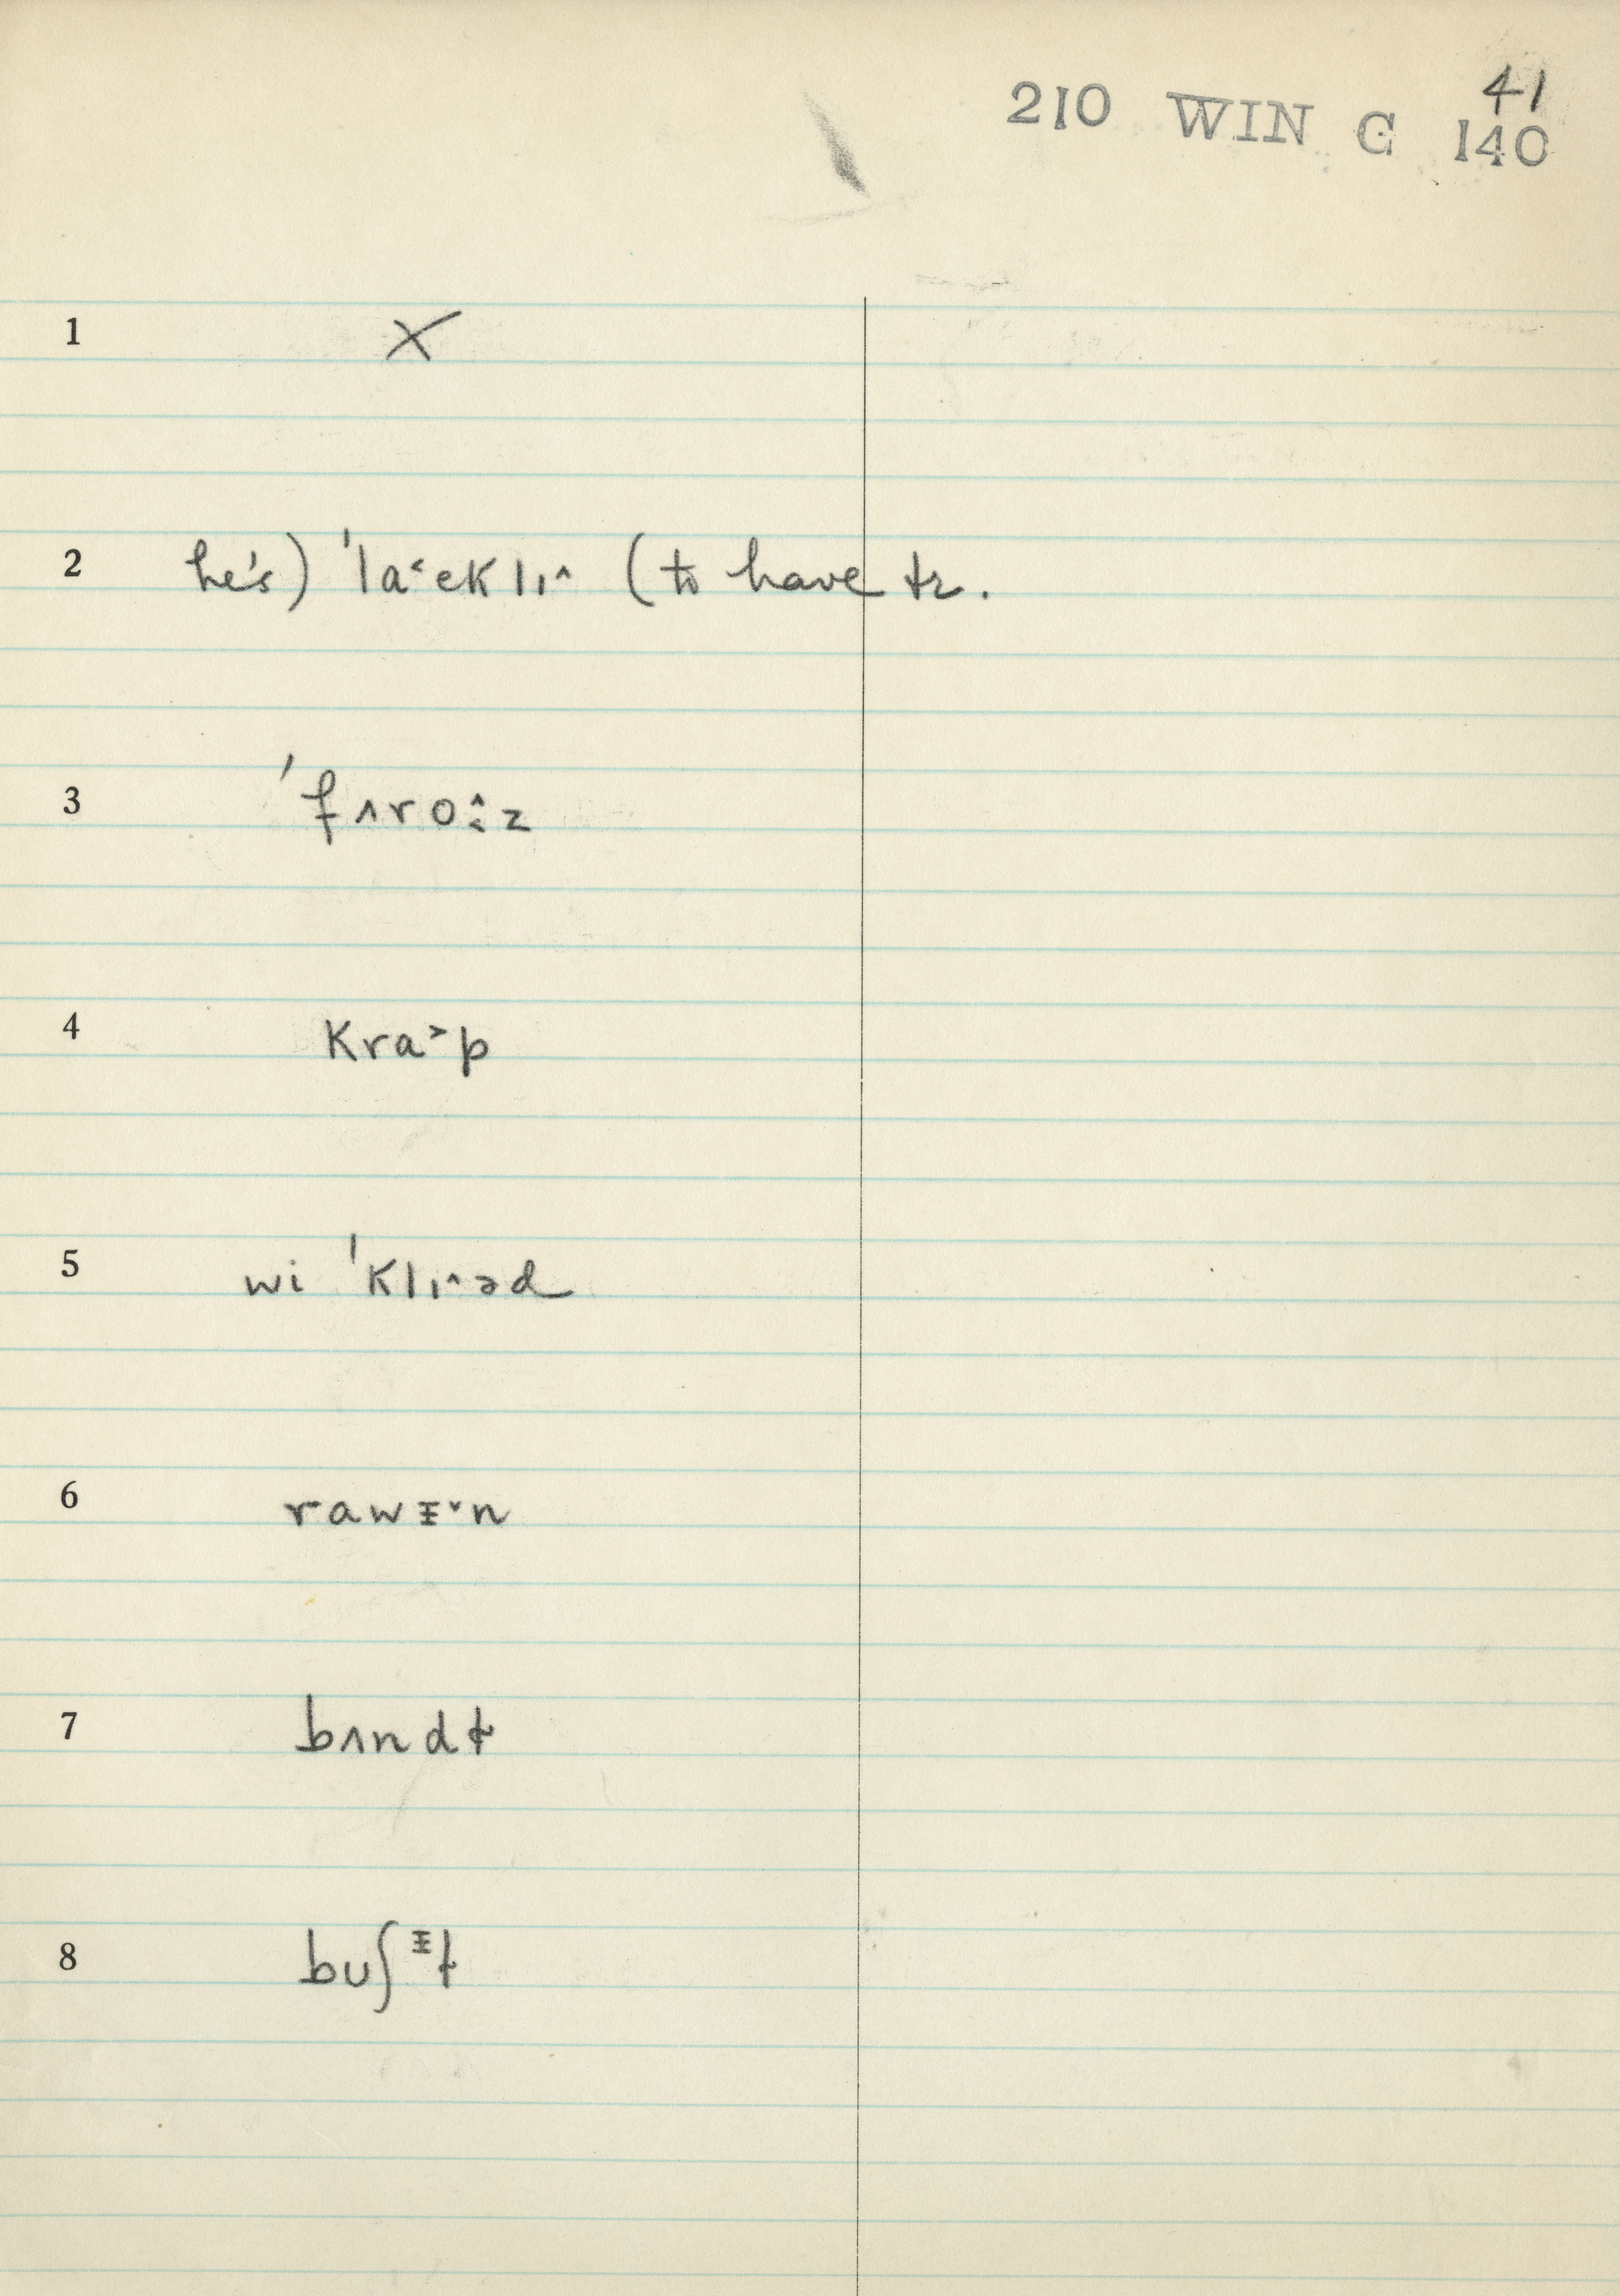 41
210 WIN C 140
1 X
2 he's) ˈla˂ekli˄ (to have tr.
3 ˈfʌroː˄˂z
4 kra˃p
5 wi ˈklɪ˄əd
6 rawɪ̵˅n
7 bʌndɫ
8 buʃᵻɫ